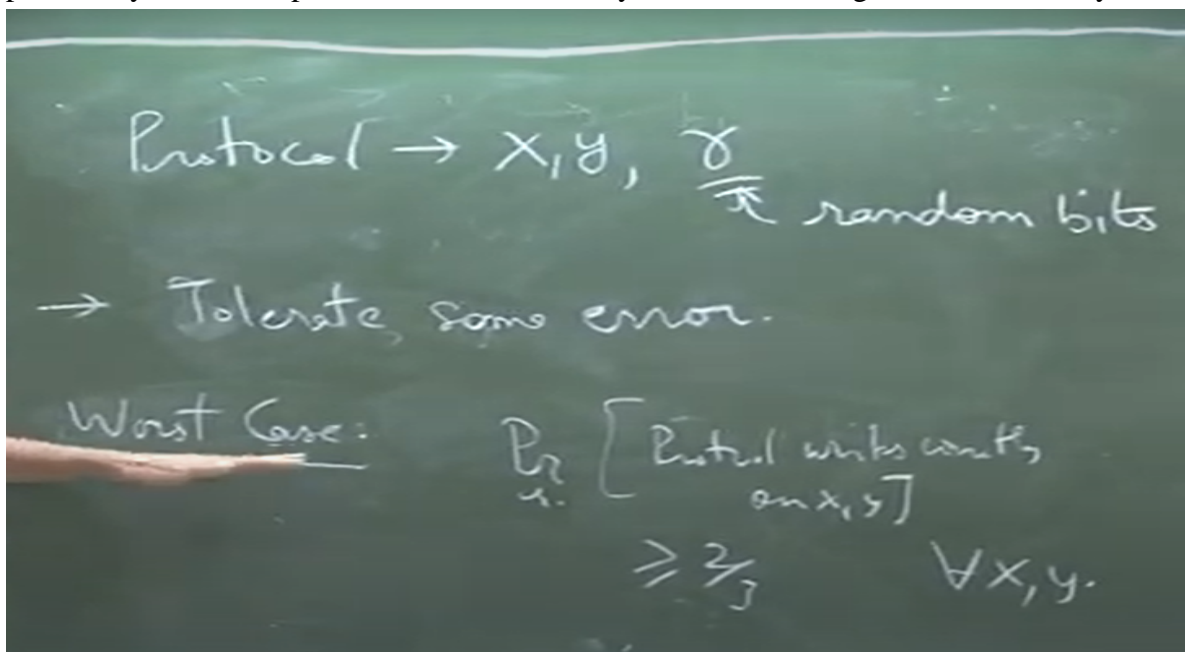 Protocol → x, y, r
random bits
→ Tolerate some error.
Worst Case:
Pr [ Protocol works correctly
r.
on x, y ]
≥ 2/3 ∀ x, y.